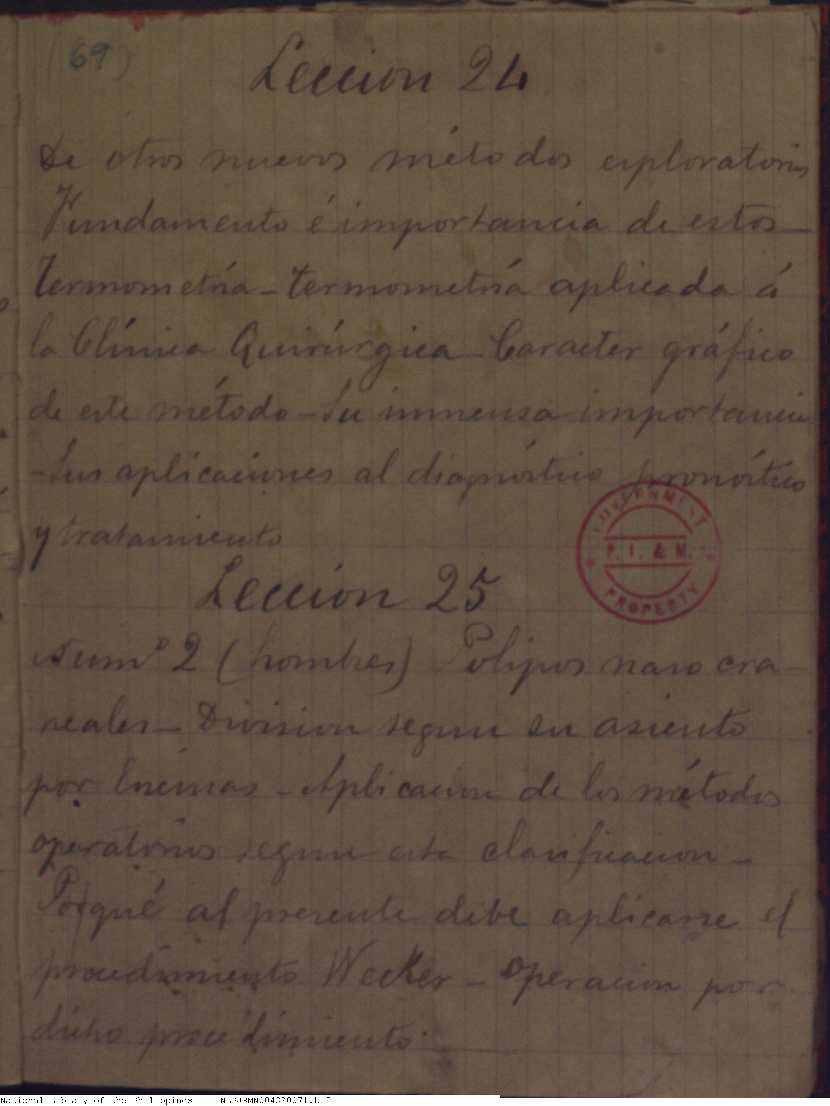 (69)
Leccion 24
De otros nuevos métodos exploratorios
Fundamento é importancia de estos—
Termometría—Termometría aplicada á
la Clínica Quirúrgica—Caracter gráfico
de este método—Su inmensa importancia
—Sus aplicaciones al diagnóstico pronóstico
y tratamiento
GOVERNMENT
P. I. & M.
PROPERTY
Leccion 25
Numº 2 (hombres) Polipos naso cra-
neales—Division segun su asiento
por Encinas—Aplicacion de los métodos
operatorios segun esta clasificacion—
Porqué al presente debe aplicarse el
procedimiento Wecker—Operacion por
dicho procedimiento.
National Library of the Philippines